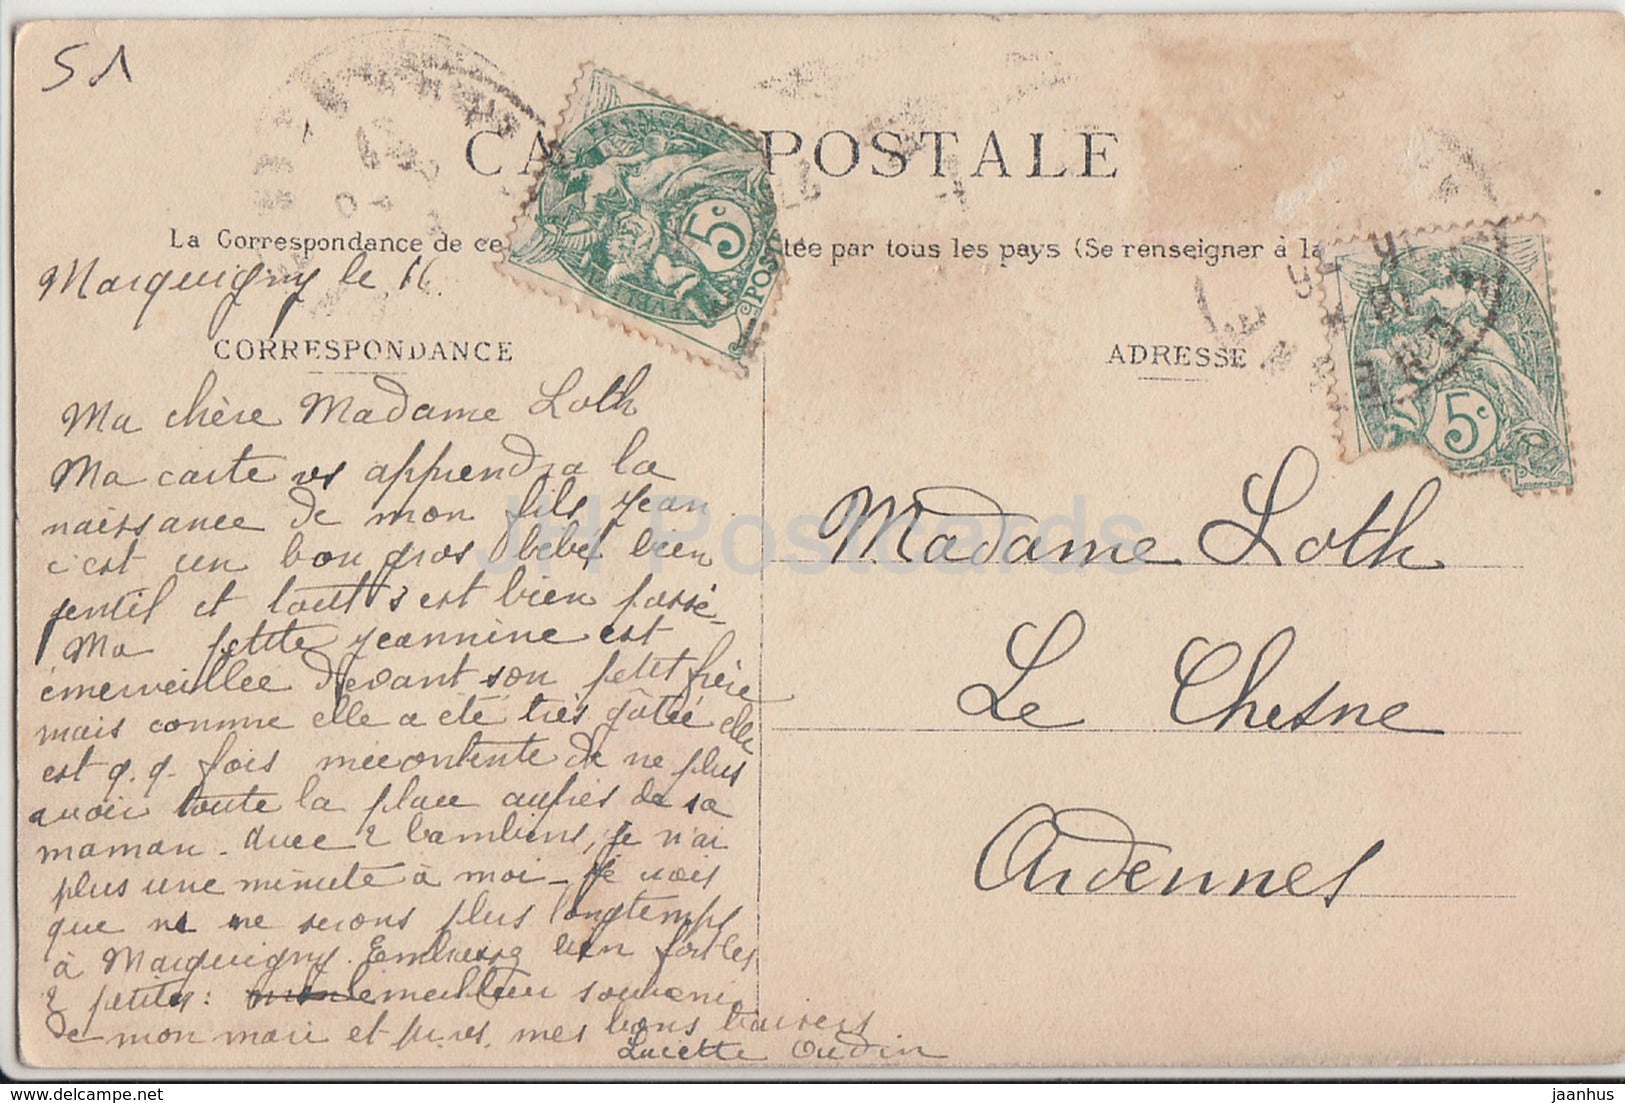 51
CA POSTALE
La Correspondance de ce tée par tous les pays (Se renseigner à la
Marquigny le 16
CORRESPONDANCE
ADRESSE
5c
POSTE
5c
Ma chère Madame Loth
Ma carte vs apprendra la
naissance de mon fils Jean
c'est un bon gros bébé bien
gentil et tout s'est bien passé
Ma petite Jeannine est
émerveillée devant son petit frère
mais comme elle a été très gâtée elle
est q.q. fois mécontente de ne plus
avoir toute la place auprès de sa
maman. Avec 2 bambins, je n'ai
plus une minute à moi _ je vois
que ns ne serons plus longtemps
à Marquigny. Embrassez bien fort les
2 petites: le meilleur souvenir
de mon mari et pr vs. mes bons baisers
Lucette Oudin
Madame Loth
Le Chesne
Ardennes
JH Postcards
delcampe.net
jaanhus